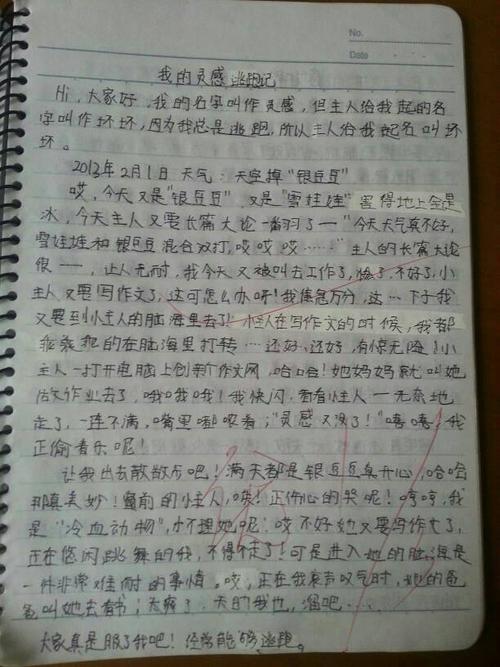 No.
Date
我的灵感逃跑记
Hi,大家好,我的名字叫作灵感,但主人给我起的名
字叫作坏坏,因为我总是逃跑,所以主人给我起名叫坏
坏。
2013年2月1日 天气:天空掉“银豆豆”
哎,今天又是“银豆豆”,又是“雪娃娃”,害得地上全是
冰,今天主人又要长篇大论一番羽了一“今天天气真不好,
雪娃娃和银豆豆混合双打,哎哎哎……”主人的长篇大论
很一,让人无耐,我今天又被叫去工作了,惨了,不好了,小
主人又要写作文了,这可怎么办呀!我焦急万分,这…下子我
又要到小主人的脑海里去了!小主人在写作文的时候,我都
乖乖把的在脑海里打转…还好,还好,有惊无险!小
主人一打开电脑上创新作文网,哈哈!她妈妈就叫她
作业去了,哦哦哦!我快闪,看着小主人一无奈地
走了,一连不满,嘴里嘟哝着;“灵感又没了!”嘻嘻,我
正偷着乐呢!
让我出去散散布吧!满天都是银豆豆真开心,哈哈
那真美妙!窗前的主人,唉!正伤心的哭呢!哼哼,我
是“冷血动物”,才不理她呢,哎不好她又要写作文了,
正在悠闲跳舞的我,不得不走了!可是进入她的脑海是
一件非常难耐的事情。哎,正在我哀声叹气时,她的爸
爸叫她去看书;太棒了,天的我也,溜吧……
大家真是服了我吧!经常能够逃跑。